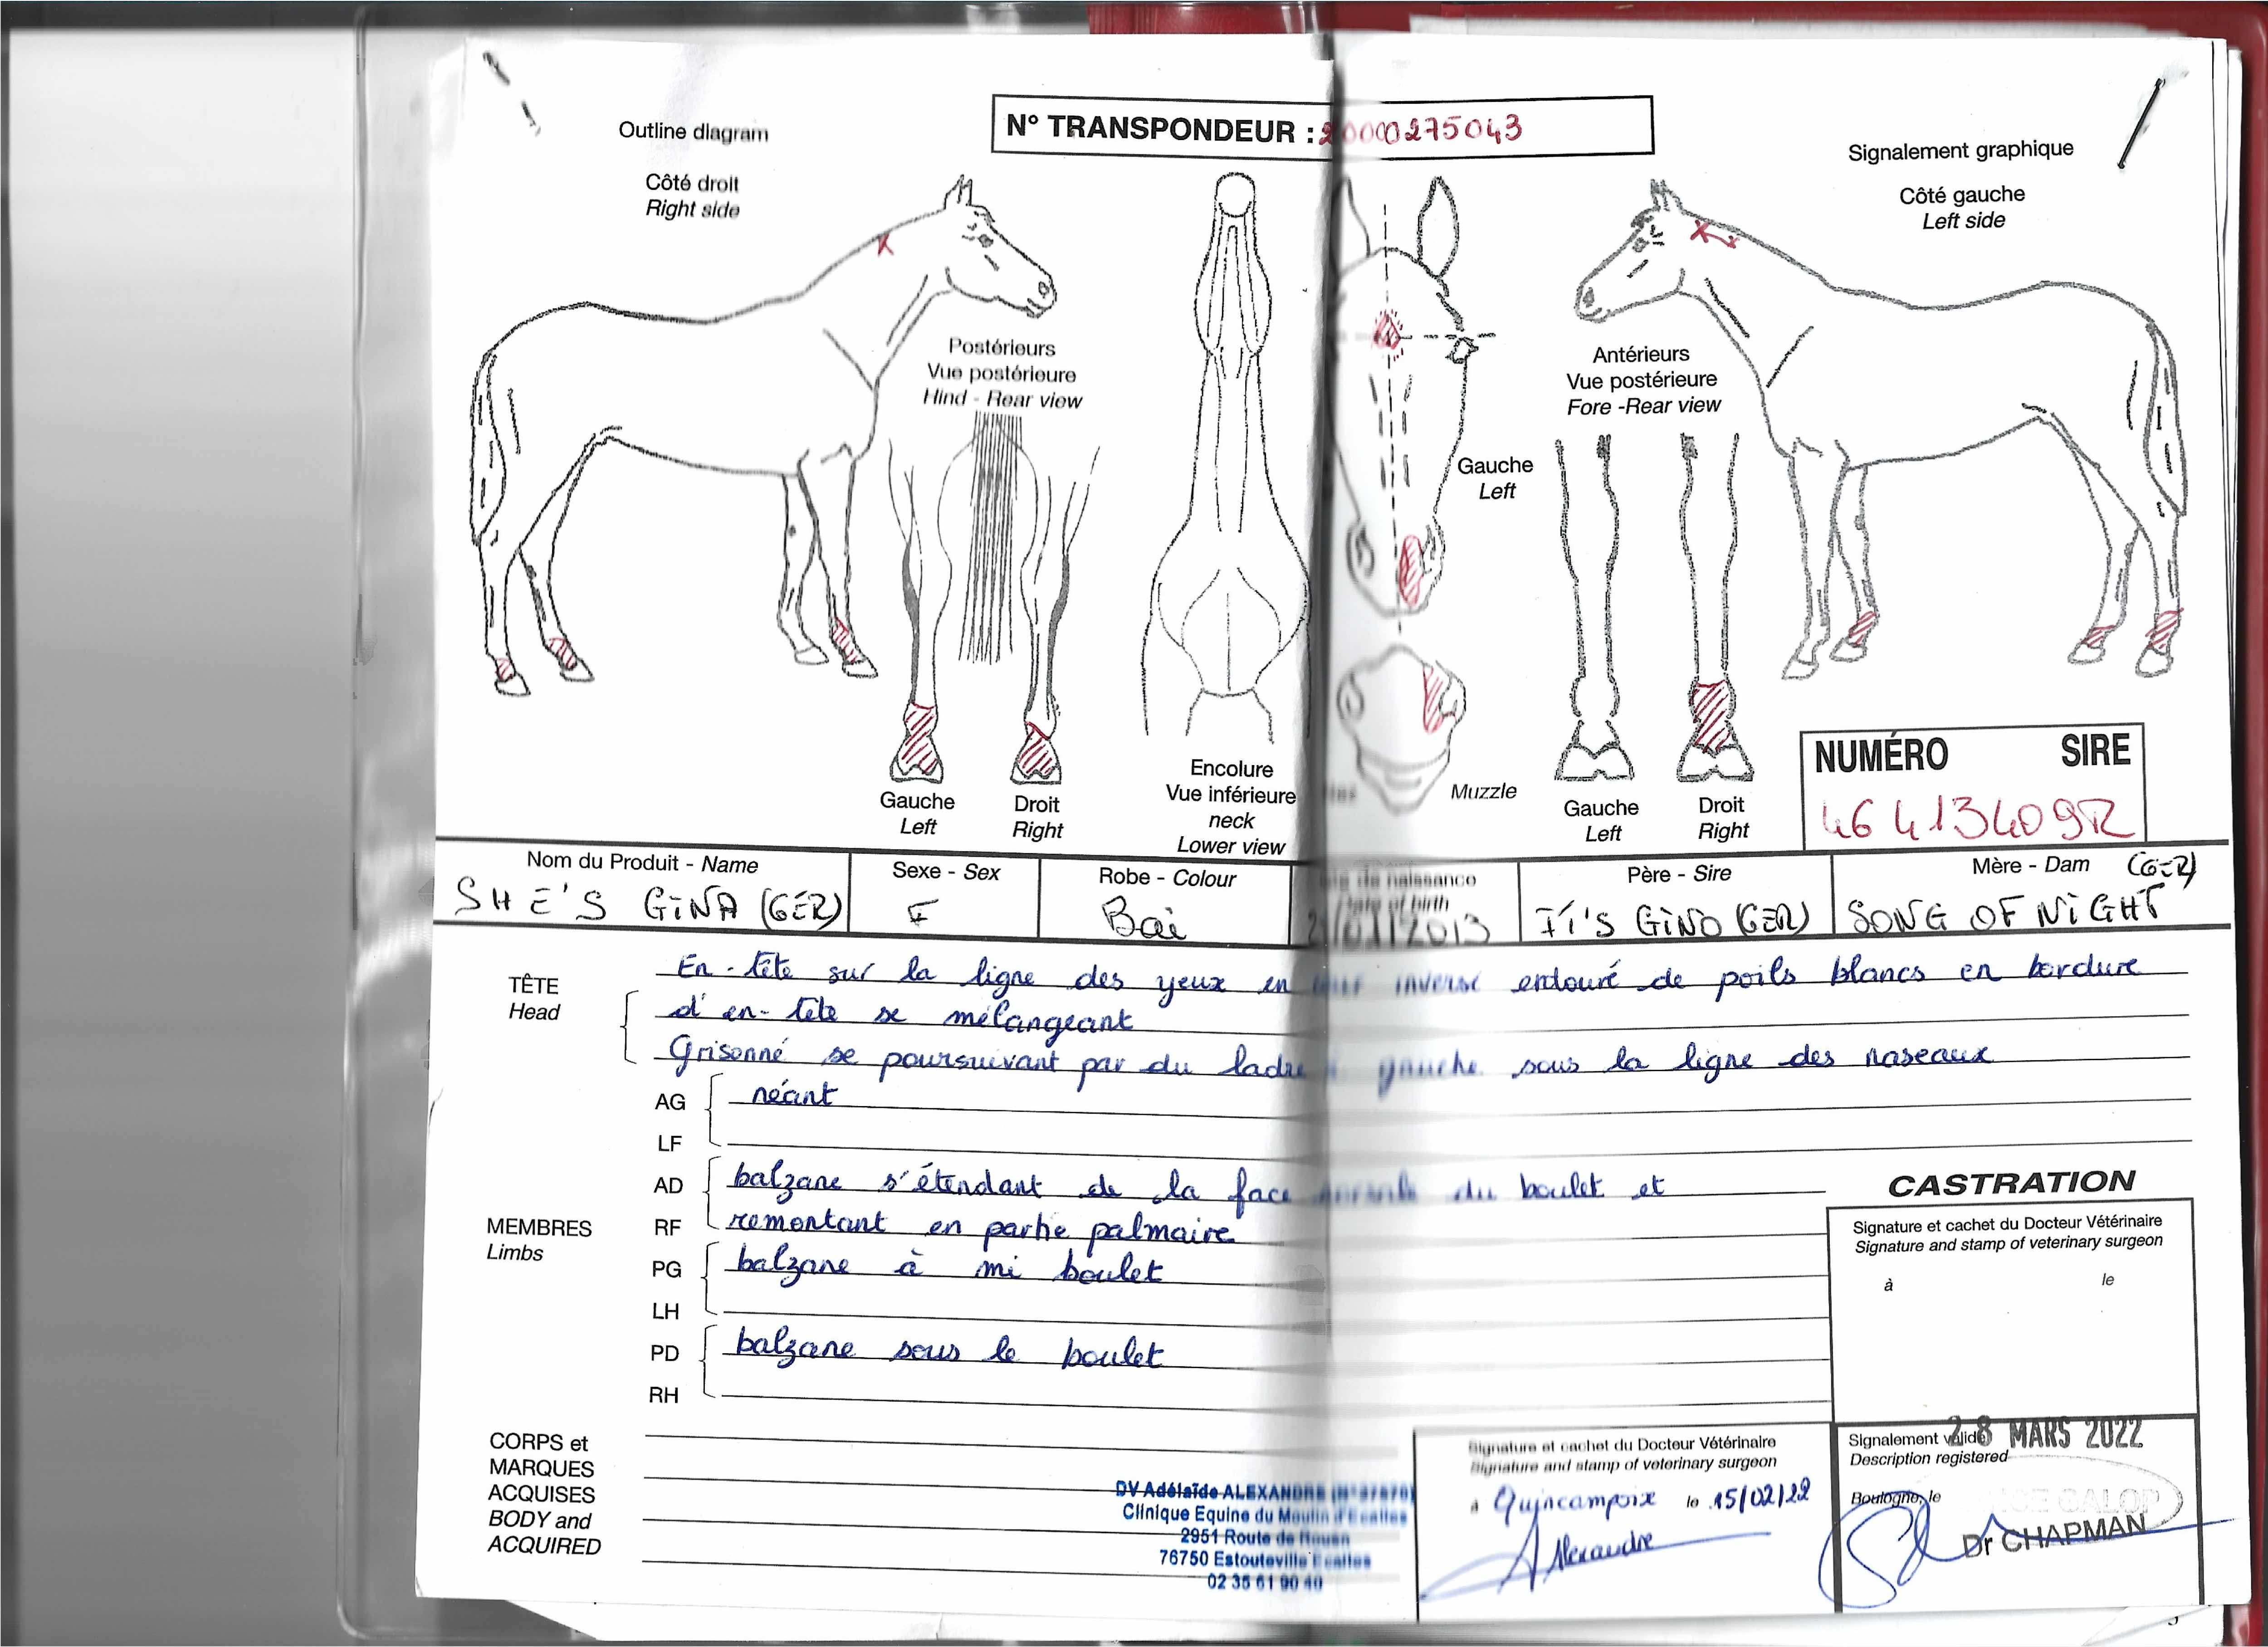 Outline diagram
N° TRANSPONDEUR :
275043
Signalement graphique
Côté droit
Right side
Côté gauche
Left side
Postérieurs
Vue postérieure
Hind - Rear view
Antérieurs
Vue postérieure
Fore -Rear view
Gauche
Left
Gauche
Left
Droit
Right
Encolure
Vue inférieure
neck
Lower view
Muzzle
Gauche
Left
Droit
Right
NUMÉRO SIRE
46413409R
Nom du Produit - Name
SHE'S GINA (GER)
Sexe - Sex
F
Robe - Colour
Bai
de naissance
Date of birth
2013
Père - Sire
IT'S GINO (GER)
Mère - Dam (GER)
SONG OF NIGHT
TÊTE
Head
En-tête sur la ligne des yeux en inversé entouré de poils blancs en bordure
d'en-tête se mélangeant
Grisonné se poursuivant par du ladre à gauche sous la ligne des naseaux
MEMBRES
Limbs
AG
LF
néant
AD
RF
balzane s'étendant de la face dorsale du boulet et
remontant en partie palmaire
PG
LH
balzane à mi boulet
PD
RH
balzane sous le boulet
CASTRATION
Signature et cachet du Docteur Vétérinaire
Signature and stamp of veterinary surgeon
à le
CORPS et
MARQUES
ACQUISES
BODY and
ACQUIRED
DV Adélaïde ALEXANDRE
Clinique Equine du Moulin d'Ecalles
2951 Route de Rouen
76750 Estouteville Ecalles
02 35 61 90 40
Signature et cachet du Docteur Vétérinaire
Signature and stamp of veterinary surgeon
à Quincampoix le 15/02/22
Alexandre
Signalement validé
28 MARS 2022
Description registered
Boulogne, le
GALOP
Dr CHAPMAN